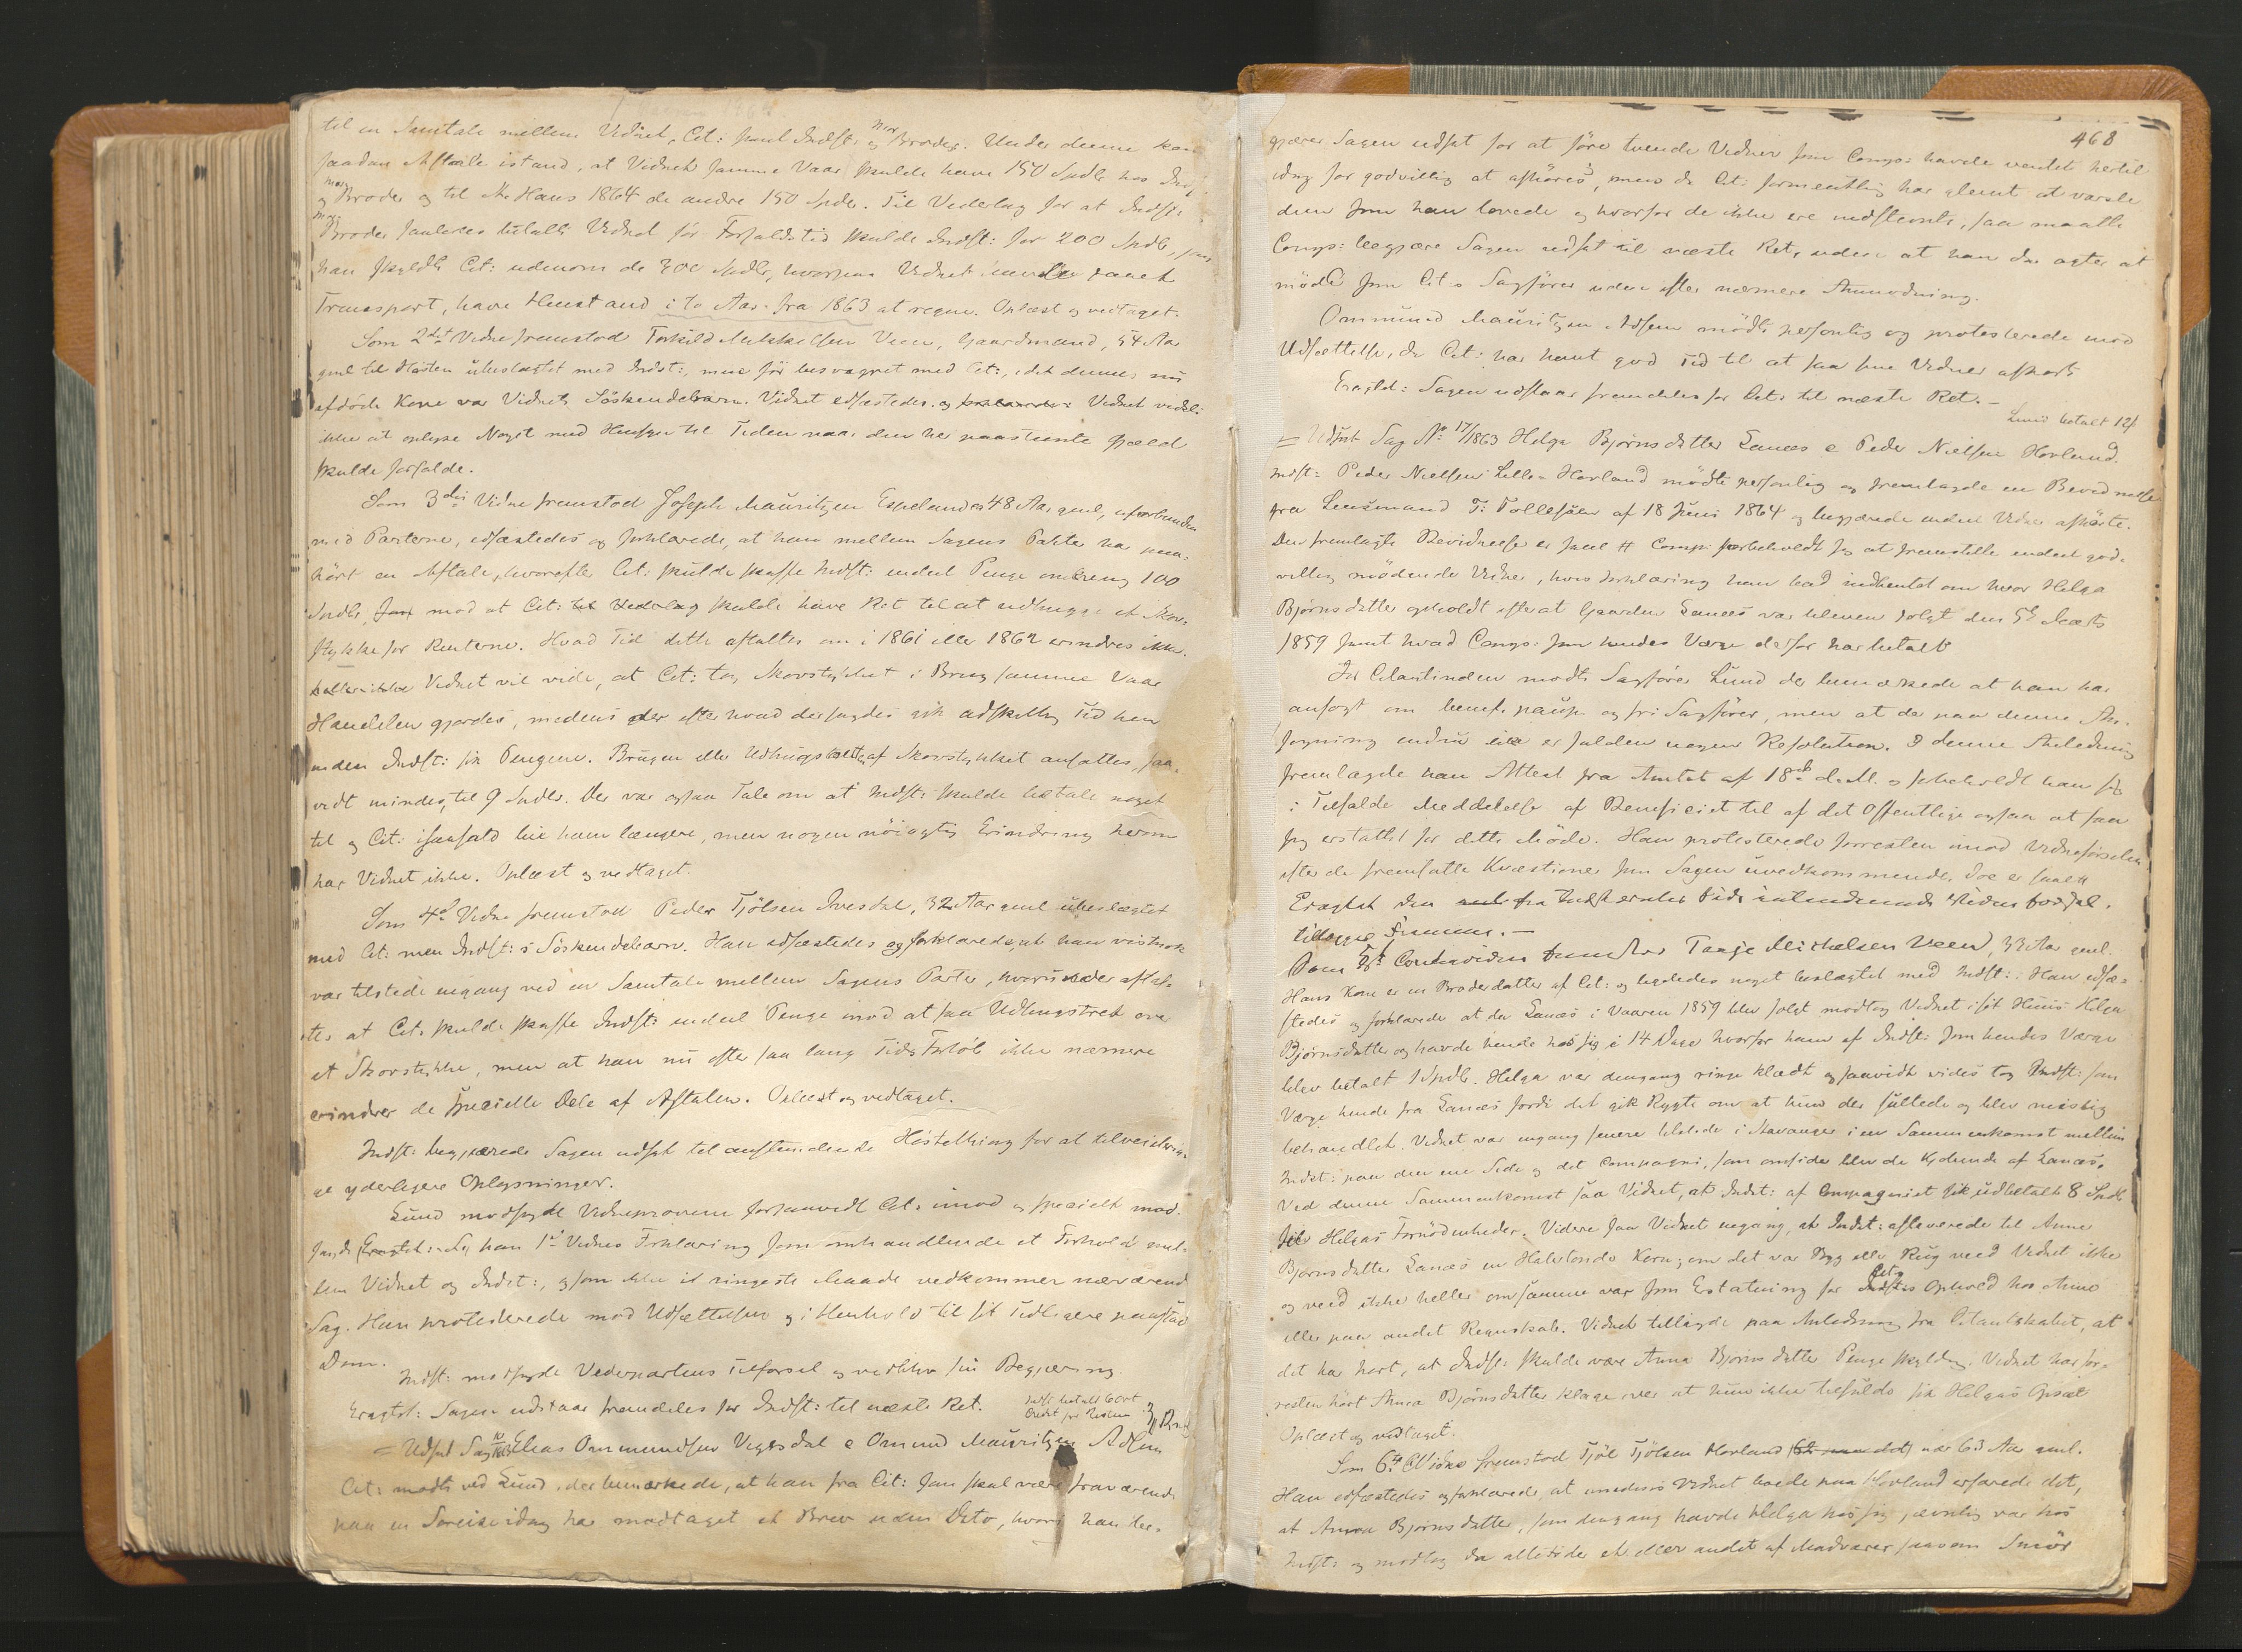 til en Samtale mellem Vidnet, Cit: samt Indst: og Broder. Under denne kom
saadan Aftale istand, at Vidnet samme Vaar skulde have 150 Spdlr hos Indst:
og Broder og til St Hans 1864 de andre 150 Spdlr. Til Vederlag for at Indst:
Broder saaledes betalte Vidnet før Forfaldstid skulde Indst: for 200 Spdlr, som
han skyldte Cit: udenom de 300 Spdlr, hvorpaa Vidnet havde faaet
Transport, have Henstand i to Aar fra 1863 at regne. Oplæst og vedtaget.
Som 2det Vidne fremstod Torkild Veen, Gaardmand, 54 Aar
gml til Høsten ubeslægtet med Indst:, men før besvogret med Cit:, idet dennes nu
afdøde Kone var Vidnets Söskendebarn. Vidnet edfæstedes og Vidnet vidste
ikke at oplyse Noget med Hensyn til Tiden naar den her paastævnte Gjæld
skulde forfalde.
Som 3die Vidne fremstod Joseph Mauritzen Espeland 48 Aar gml, uforbunden
med Parterne, edfæstedes og forklarede, at han mellem Sagens Parter har paa-
hørt en Aftale, hvorefter Cit: skulde skaffe Indst: endeel Penge omkring 100
Spdlr, mod at Cit: til Vederlag skulde have Ret til at udhugge et Skov-
stykke for Renterne. Hvad Tid dette aftaltes om i 1861 eller 1862 erindres ikke.
Vidnet vil vide, at Cit: tog Skovstykket i Brug samme Vaar
Handelen gjordes, medens der efter hvad der sagdes gik adskillig Tid hen
inden Indst: fik Pengene. Brugen eller Udhugst af Skovstykket ansattes, saa-
vidt mindes, til 9 Spdlr. Der var ogsaa Tale om at Indst: skulde betale noget
til og Cit: isaafald bie ham længere, men nogen nöiagtig Erindring herom
har Vidnet ikke. Oplæst og vedtaget.
Som 4de Vidne fremstod Peder Tjölsen Ivesdal, 32 Aar gml ubeslægtet
med Cit: men Indst:s Söskendebarn. Han edfæstedes og forklarede, at han vistnok
var tilstede engang ved en Samtale mellem Sagens Parter, hvorunder aftal-
tes at Cit: skulde skaffe Indst: endeel Penge mod at faa Udhugstret over
et Skovstykke, men at han nu efter saa lang Tids Forløb ikke nærmere
erindrer de specielle Dele af Aftalen. Oplæst og vedtaget.
Indst: begjærede Sagen udsat til anstendende Høstething for at tilveiebrin-
ge yderligere Oplysninger.
Lund modsagde Vidneprovene forsaavidt Cit: imod og specielt mod-
sagde han 1ste Vidnes Forklaring som omhandlende et Forhold mel-
lem Vidnet og Indst:, og som ikke i ringeste Maade vedkommer nærværende
Sag. Han protesterede mod Udsættelsen og i Henhold til sit Tidligere paastod
Dom.
Indst: modsagde Vederpartens Tilførsel og vedblev sin Begjæring
Eragtet: Sagen udstaar fremdeles for Indst: til næste Ret.
= Udsat Sag Elias Ommundsen Vegesdal c Omund Mauritzen Adsem
Cit: mødte ved Lund, der bemærkede, at han fra Cit: som skal være fraværende
paa en Søreise idag har modtaget et Brev uden Dato, hvori han be-
468
gjærer Sagen udsat for at føre tvende Vidner som Comp: havde ventet hertil
idag for godvillig at afhøres, men da Cit: formentlig har glemt at varsle
dem som han lovede og hvorfor de ikke ere indstevnte, saa maatte
Comp: begjære Sagen udsat til næste Ret, uden at han da agter at
møde som Cit:s Sagfører uden efter nærmere Anmodning.
Ommund Mauritzen Adsem mødte personlig og protesterede mod
Udsættelse, da Cit: har havt god Tid til at faa sine Vidner afhørt
Eragtet: Sagen udstaar fremdeles for Cit: til næste Ret.
Lund betalt 12ß
= Udsat Sag No 17/1863 Helga Bjørnsdatter Lanæs c Peder Nielsen Hovland.
Indst: Peder Nielsen Lille-Hovland mødte personlig og fremlagde en Bevidnelse
fra Lensmand T. Tollefsen af 18 Juni 1864 og begjærede endeel Vidner afhørte.
Den fremlagte Bevidnelse er saal # Comp: forbeholdt sig at fremstille endeel god-
villig mødende Vidner, hvis Forklaring han bad indhentet om hvor Helga
Bjørnsdatter opholdt efterat Gaarden Lanæs var bleven solgt den 5te Marts
1859 samt hvad Comp: som hendes Værge derfor har betalt
For Citantinden mødte Sagfører Lund der bemærkede at han har
ansøgt om benef. paup. og fri Sagfører, men at der paa denne An-
søgning endnu ikke er falden nogen Resolution. I denne Anledning
fremlagde han Attest fra Amtet af 18de d.M. og forbeholdt han sig
i Tilfælde Meddelelse af Beneficiet til af det Offentlige ogsaa at faa
sig erstattet for dette Møde. Han protesterede forresten imod Vidneførselen
efter de fremsatte Kvæstioner som Sagen uvedkommende. Doc er saal #
Eragtet den
tillægges Fremme.
Som 5te Contravidne fremstod Tarje Michelsen Veen, 33 Aar gml.
Hans Kone er en Broderdatter af Cit: og ligeledes noget beslægtet med Indst: Han edfæ-
stedes og forklarede at da Lanæs i Vaaren 1859 blev solgt modtog Vidnet i sit Huus Helga
Bjørnsdatter og havde hende hos sig i 14 Dage hvorfor ham af Indst: som hendes Værge
blev betalt 1 Spdlr. Helga var dengang ringe klædt og saavidt vides tog Indst: som
Værge hende fra Lanæs fordi det gik Rygte om at hun der sultede og blev misslig
behandlet. Vidnet var engang senere tilstede i Stavanger i en Sammenkomst mellem
Indst: paa den ene Side og det Compagni, som omsider blev de Kjøbende af Lanæs.
Ved denne Sammenkomst saa Vidnet, at Indst: af Compagniet fik udbetalt 8 Spdlr
til Helgas Fornødenheder. Videre saa Vidnet engang, at Indst: afleverede til Anna
Bjørnsdatter Lanæs en Halvtønde Korn; om det var Byg eller Rug veed Vidnet ikke
og veed ikke heller om samme var som Erstatning for Cit:s Ophold hos Anna
eller paa andet Regnskab. Vidnet tillagde paa Anledning fra Citantskabet, at
det har hørt, at Indst: skulde være Anna Bjørnsdatter Penge skyldig. Vidnet har for-
resten hørt Anna Bjørnsdatter klage over at hun ikke tilfulde fik Helgas Opsæt
Oplæst og vedtaget.
Som 6te CVidne fremstod Tjøl Tjølsen Hovland nær 63 Aar gml.
Han edfæstedes og forklarede, at imedens Vidnet boede paa Hovland erfarede det,
at Anna Bjørnsdatter, som dengang havde Helga hos sig, jævnlig var hos
Indst: og modtog da altid et eller andet af Madvarer saasom Smør